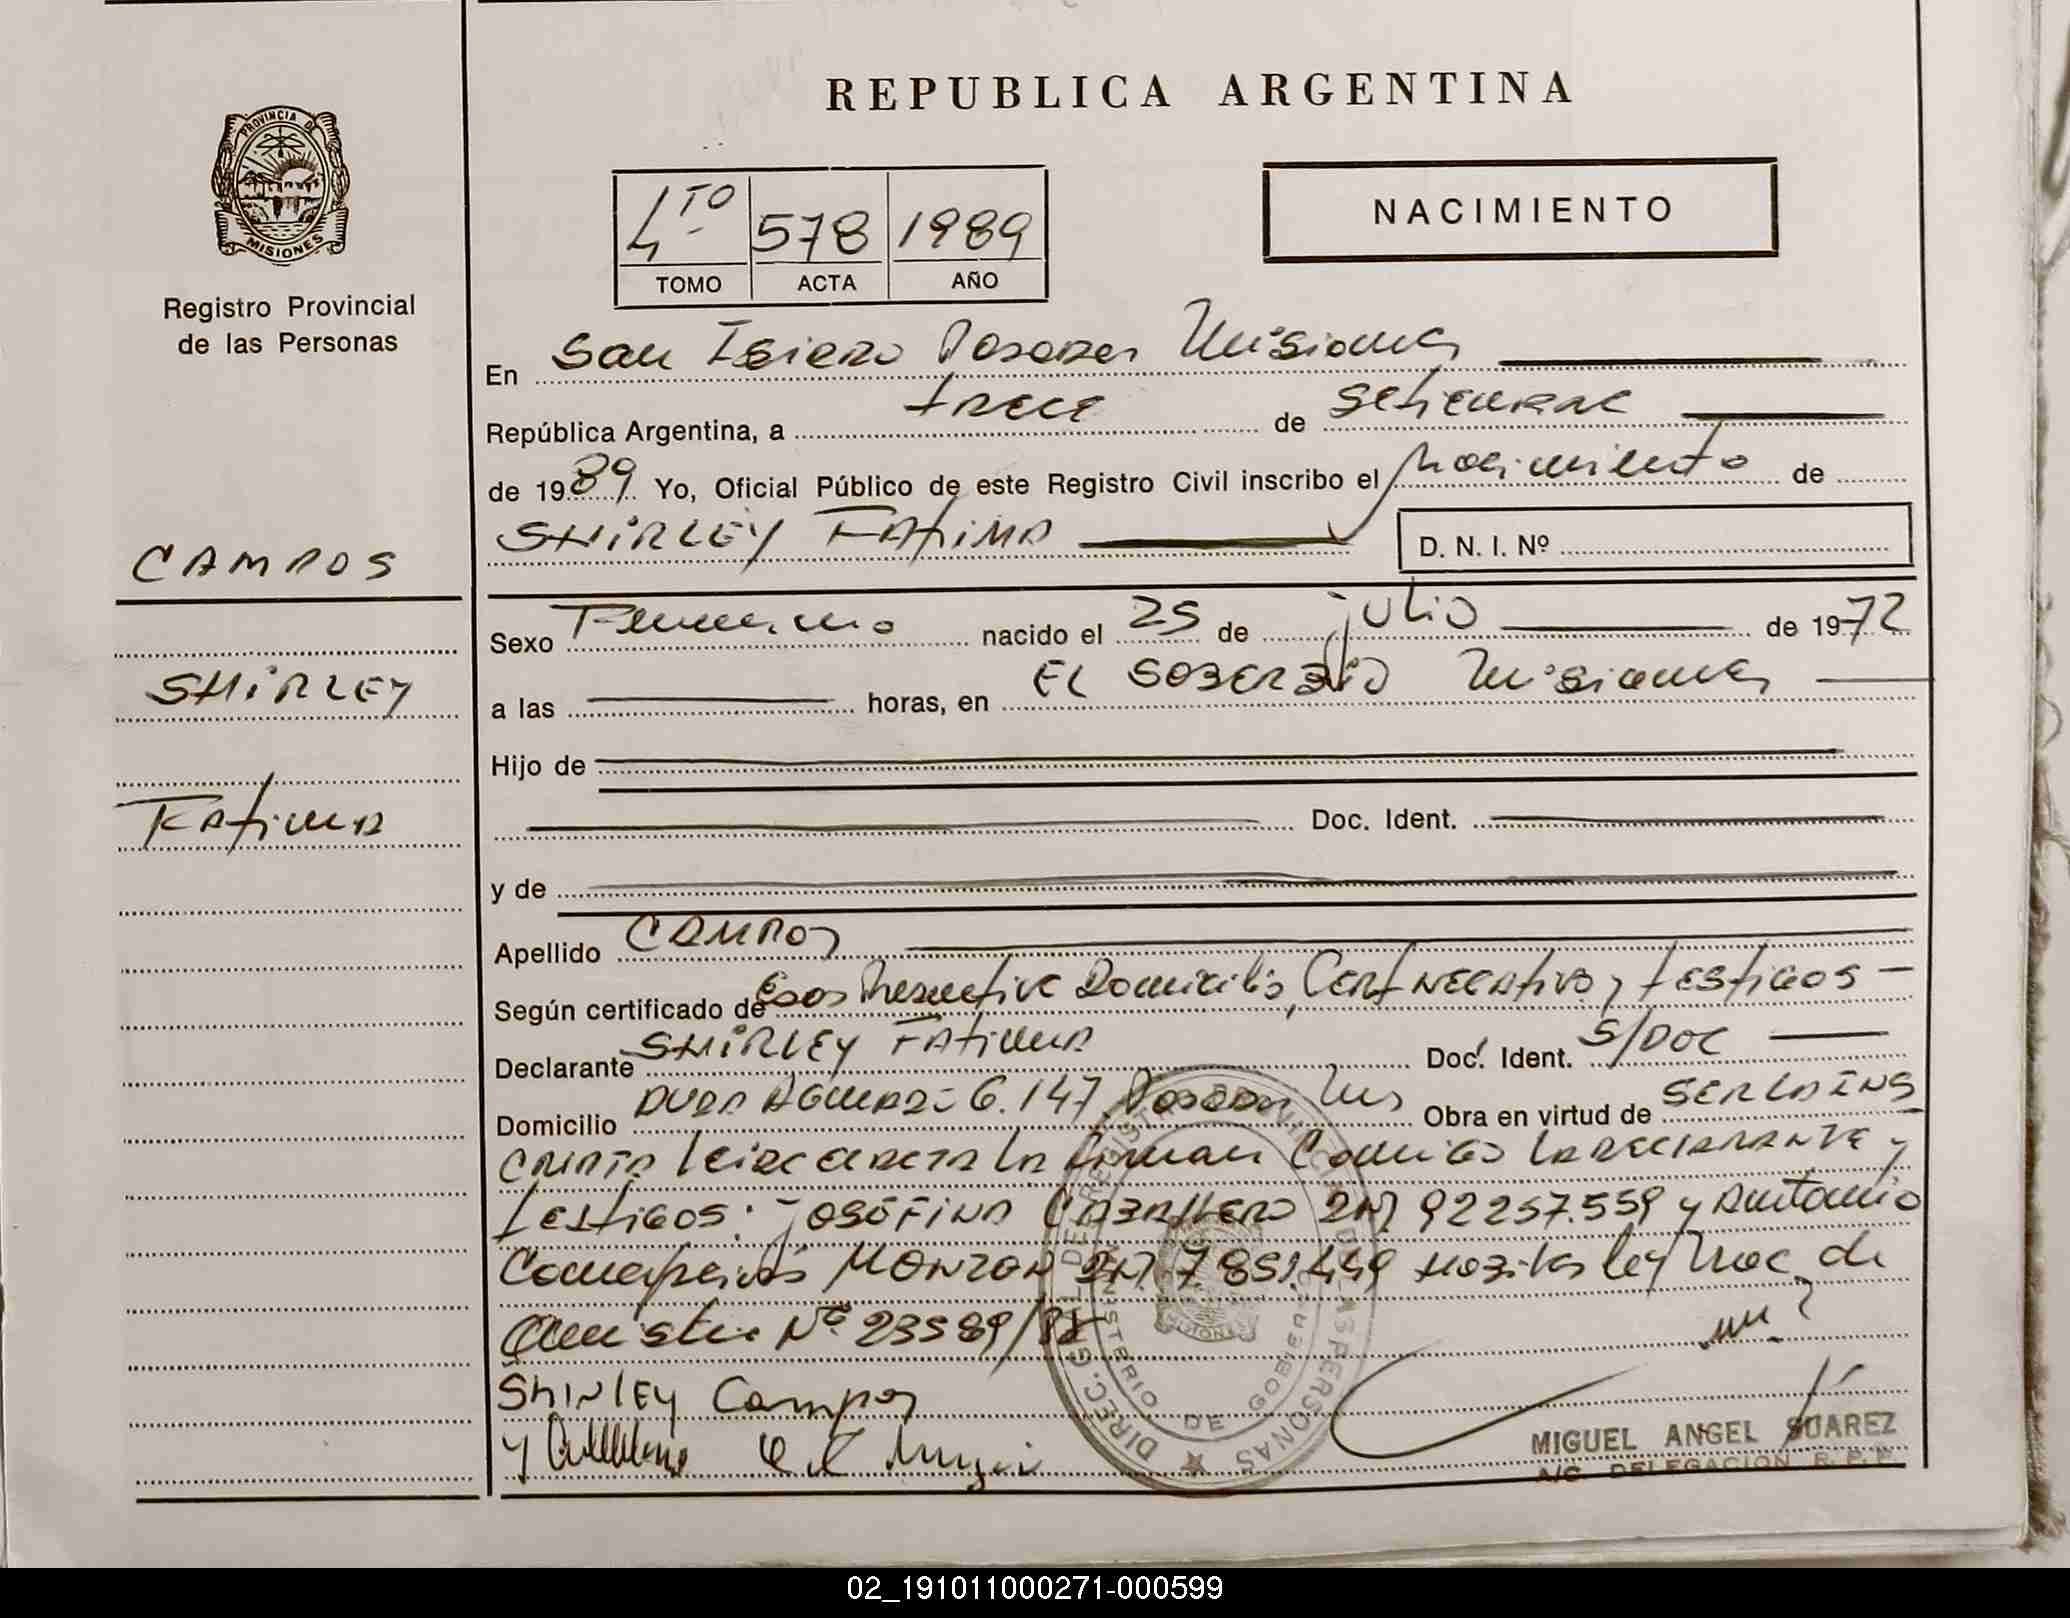 REPUBLICA ARGENTINA
PROVINCIA DE
MISIONES
Registro Provincial
de las Personas
4TO 578 1989
TOMO ACTA AÑO
NACIMIENTO
En San Isidro Posadas Misiones
República Argentina, a trece de Setiembre
de 1989 Yo, Oficial Público de este Registro Civil inscribo el nacimiento de
SHIRLEY FATIMA
D. N. I. Nº
CAMPOS
SHIRLEY
FATIMA
Sexo Femenino nacido el 25 de julio de 1972
a las horas, en EL SOBERBIO Misiones
Hijo de
Doc. Ident.
y de
Apellido CAMPOS
Según certificado de Domicilio, Cert Negativo y testigos
Declarante SHIRLEY FATIMA Doc. Ident. S/DOC
Domicilio 6.147 Posadas Mes Obra en virtud de
acta la firman Conmigo la declarante y
testigos: JOSEFINA CABALLERO DNI 92257.559 y Antonio
MONZON DNI 7.851.449 ley Nac de
Nº 23589/88
Shirley Campos
MIGUEL ANGEL SUAREZ
A/C DELEGACION R. P. P.
DIREC. GRAL. DE REGISTRO PROVINCIAL DE LAS PERSONAS
MINISTERIO DE GOBIERNO
MISIONES
02_191011000271-000599